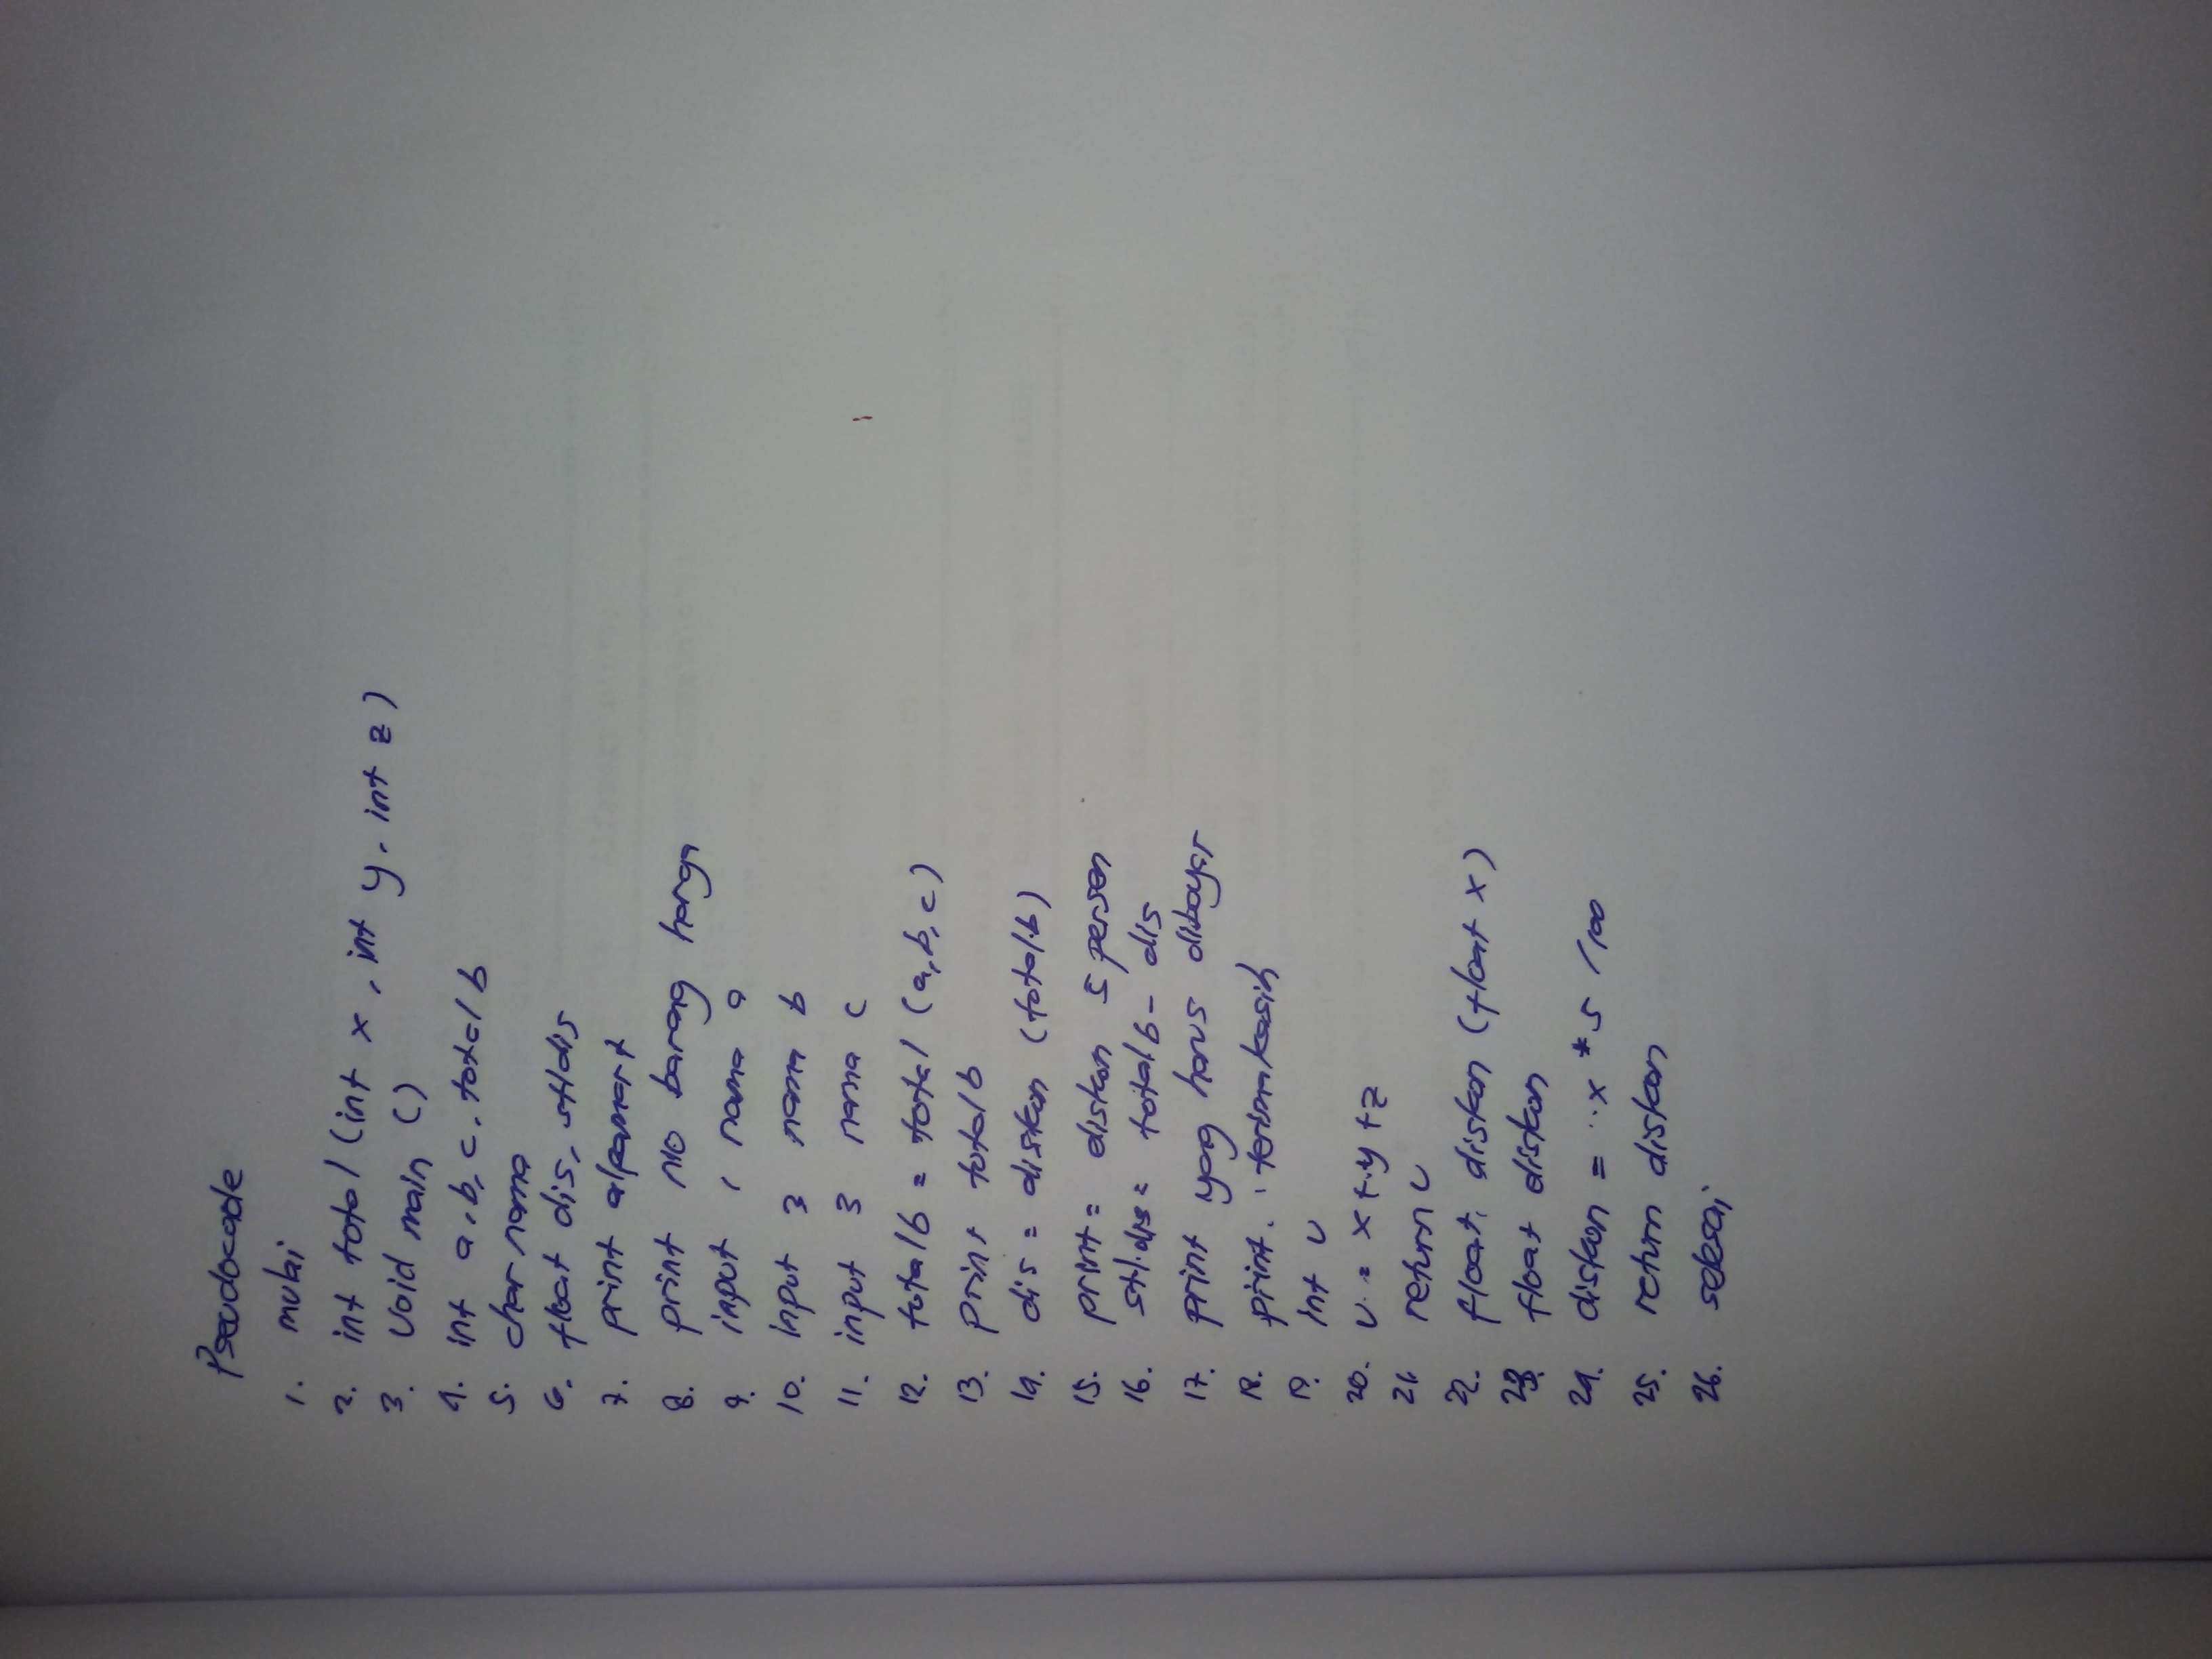 Pseudocode
1. mulai
2. int total (int x, int y, int z)
3. void main ()
4. int a, b, c, total b
5. char nama
6. float dis, stldis
7. print alpamart
8. print no barang harga
9. input 1 nama a
10. input 3 nama b
11. input 3 nama c
12. totalb = total (a, b, c)
13. print totalb
14. dis = diskon (total.b)
15. print = diskon 5 persen
16. stl.dis = totalb - dis
17. print yang harus dibayar
18. print. terimakasih
19. int u
20. u = x + y + z
21. return u
22. float. diskon (float x)
23. float diskon
24. diskon = x * 5 / 100
25. return diskon
26. selesai